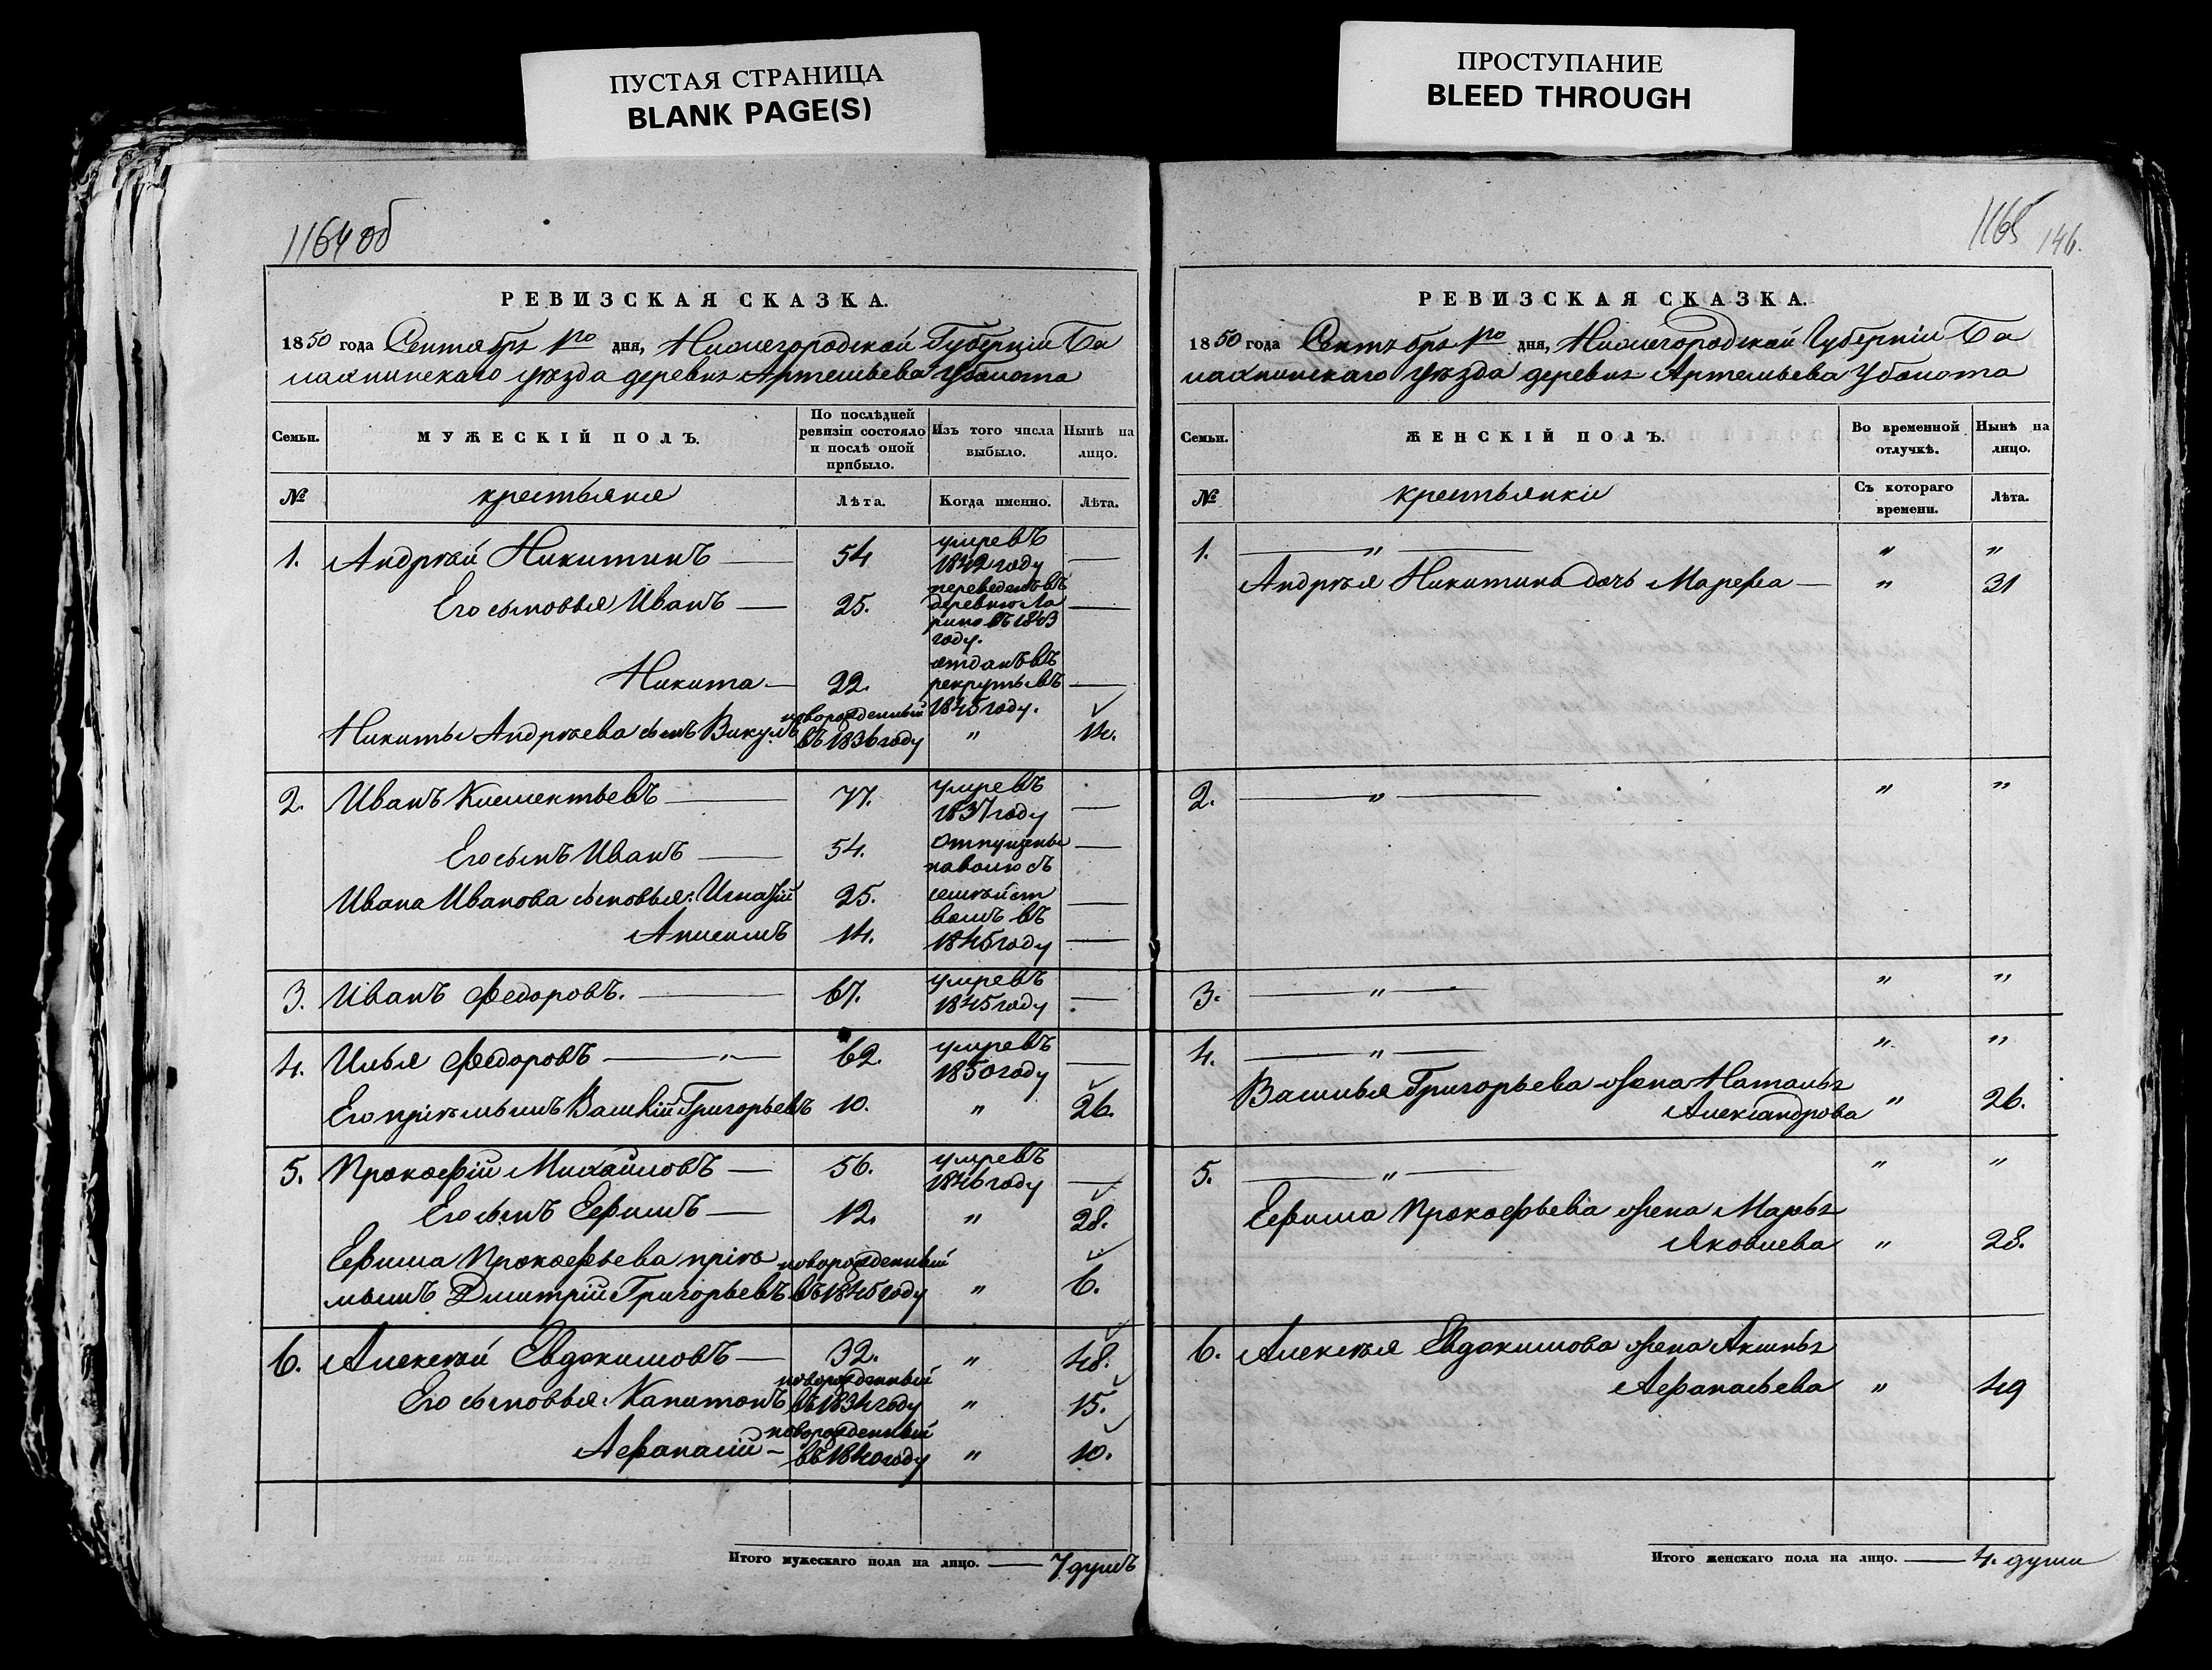 ПУСТАЯ СТРАНИЦА
BLANK PAGE(S)
ПРОСТУПАНИЕ
BLEED THROUGH
1164об
РЕВИЗСКАЯ СКАЗКА.
1850 года Сентября 1го дня, Нижегородской Губернiи Ба
лахнинскаго уѣзда деревни Артемьева Уболота
Семьи. МУЖЕСКIЙ ПОЛЪ. По послѣдней ревизiи состояло и послѣ оной прибыло. Изъ того числа выбыло. Нынѣ на лицо.
№ крестьяне Лѣта. Когда именно. Лѣта.
1. Андрѣй Никитинъ — 54 умревъ 1842 году —
Его сыновья Иванъ — 25. переведенъ въ деревню Ларино въ 1843 году. —
Никита — 22. отданъ въ рекруты въ 1845 году. —
Никиты Андрѣева сынъ Викулъ новорожденный въ 1836 году " 14.
2. Иванъ Климентьевъ — 77. умревъ 1837 году —
Его сынъ Иванъ — 54. отпущены —
наволю съ
Ивана Иванова сыновья: Игнатiй 25. семѣйст —
вомъ въ
Анисимъ 14. 1845 году —
3. Иванъ Федоровъ. — 67. умревъ 1845 году —
4. Илья Федоровъ — " — 62. умревъ 1850 году —
Его прiѣмышъ Василiй Григорьевъ 10. " 26.
5. Прокофiй Михайловъ — 56. умревъ 1846 году —
Его сынъ Ефимъ — 12. " 28.
Ефима Прокофьева прiѣ новорожденный
мышъ Дмитрiй Григорьевъ въ 1845 году " 6.
6. Алексѣй Евдокимовъ — 32. " 48.
Его сыновья: Капитонъ новорожденный въ 1834 году " 15.
Афанасiй — новорожденный въ 1840 году " 10.
Итого мужескаго пола на лицо. — 7 душъ
1165 146.
РЕВИЗСКАЯ СКАЗКА.
1850 года Сентября 1го дня, Нижегородской Губернiи Ба
лахнинскаго уѣзда деревни Артемьева Уболота
Семьи. ЖЕНСКIЙ ПОЛЪ. Во временной отлучкѣ. Нынѣ на лицо.
№ крестьянки Съ котораго времени. Лѣта.
1. — " — " "
Андрѣя Никитина дочь Марфа — " 31
2. — " — " "
3. — " — " "
4. — " — " "
Василья Григорьева жена Наталья
Александрова " 26.
5. — " — " "
Ефима Прокофьева жена Марья
Яковлева " 28.
6. Алексѣя Евдокимова жена Акинья
Афанасьева " 49
Итого женскаго пола на лицо. — 4. души